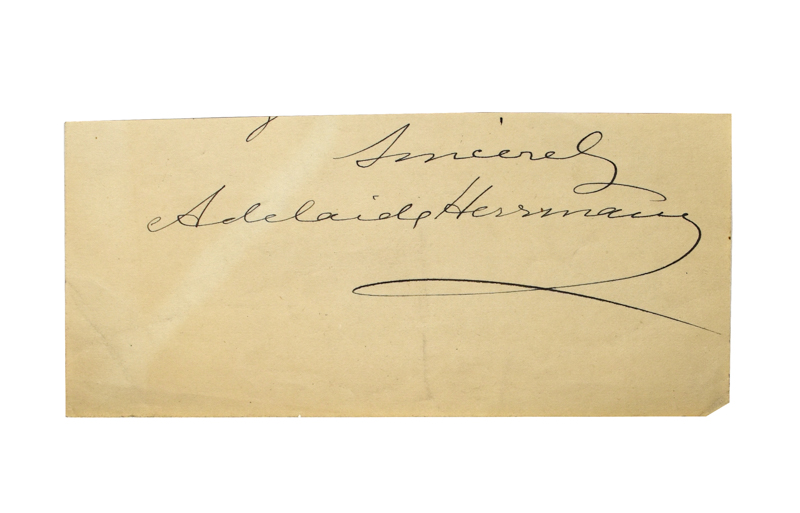 Sincerely
Adelaide Herrmann